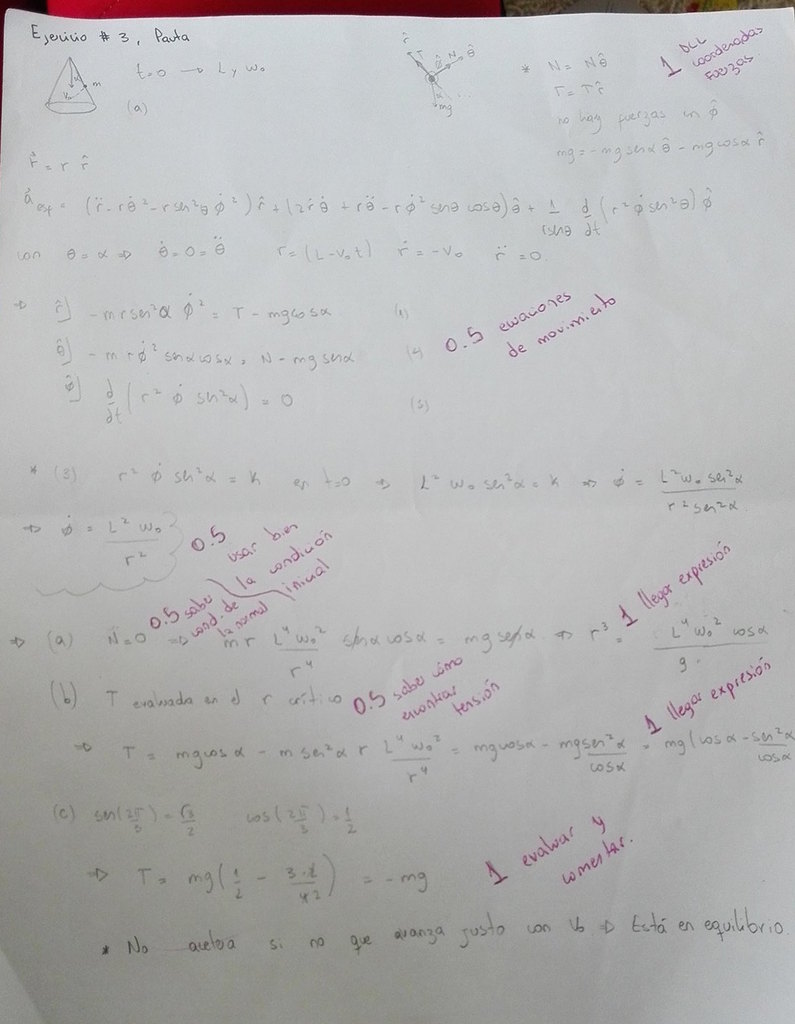 Ejercicio # 3, Pauta
t=0 → L y ω₀
m
(a)
r̂
N
θ̂
φ̂
mg
α
* N = N θ̂
T = T r̂
no hay fuerzas en φ̂
mg = -mg senα θ̂ - mg cosα r̂
1 DCL
coordenadas
fuerzas.
r⃗ = r r̂
a⃗ esf = (r̈ - rθ̇² - r sen²θ φ̇²) r̂ + (2ṙθ̇ + rθ̈ - rφ̇² senθ cosθ) θ̂ + 1/(r senθ) d/dt (r² φ̇ sen²θ) φ̂
con θ = α ⇒ θ̇ = 0 = θ̈ r = (L - V₀t) ṙ = -V₀ r̈ = 0.
⇒ r̂] -m r sen²α φ̇² = T - mg cosα (1)
θ̂] -m r φ̇² senα cosα = N - mg senα (2)
φ̂] d/dt (r² φ̇ sen²α) = 0 (3)
0.5 ecuaciones
de movimiento
* (3) r² φ̇ sen²α = K en t=0 ⇒ L² ω₀ sen²α = K ⇒ φ̇ = L² ω₀ sen²α / r² sen²α
⇒ φ̇ = L² ω₀ / r²
0.5 usar bien
la condición
inicial
0.5 saber
cond. de
la normal
⇒ (a) N=0 ⇒ m r L⁴ ω₀² / r⁴ senα cosα = mg senα ⇒ r³ = L⁴ ω₀² cosα / g
1 llegar expresión
(b) T evaluada en el r crítico
0.5 saber cómo
encontrar
tensión
⇒ T = mg cosα - m sen²α r L⁴ ω₀² / r⁴ = mg cosα - mg sen²α / cosα = mg (cosα - sen²α / cosα
1 llegar expresión
(c) sen(2π/3) = √3/2 cos(2π/3) = 1/2
⇒ T = mg (1/2 - 3·2/4) = -mg
1 evaluar y
comentar.
* No acelera si no que avanza justo con V₀ ⇒ Está en equilibrio.